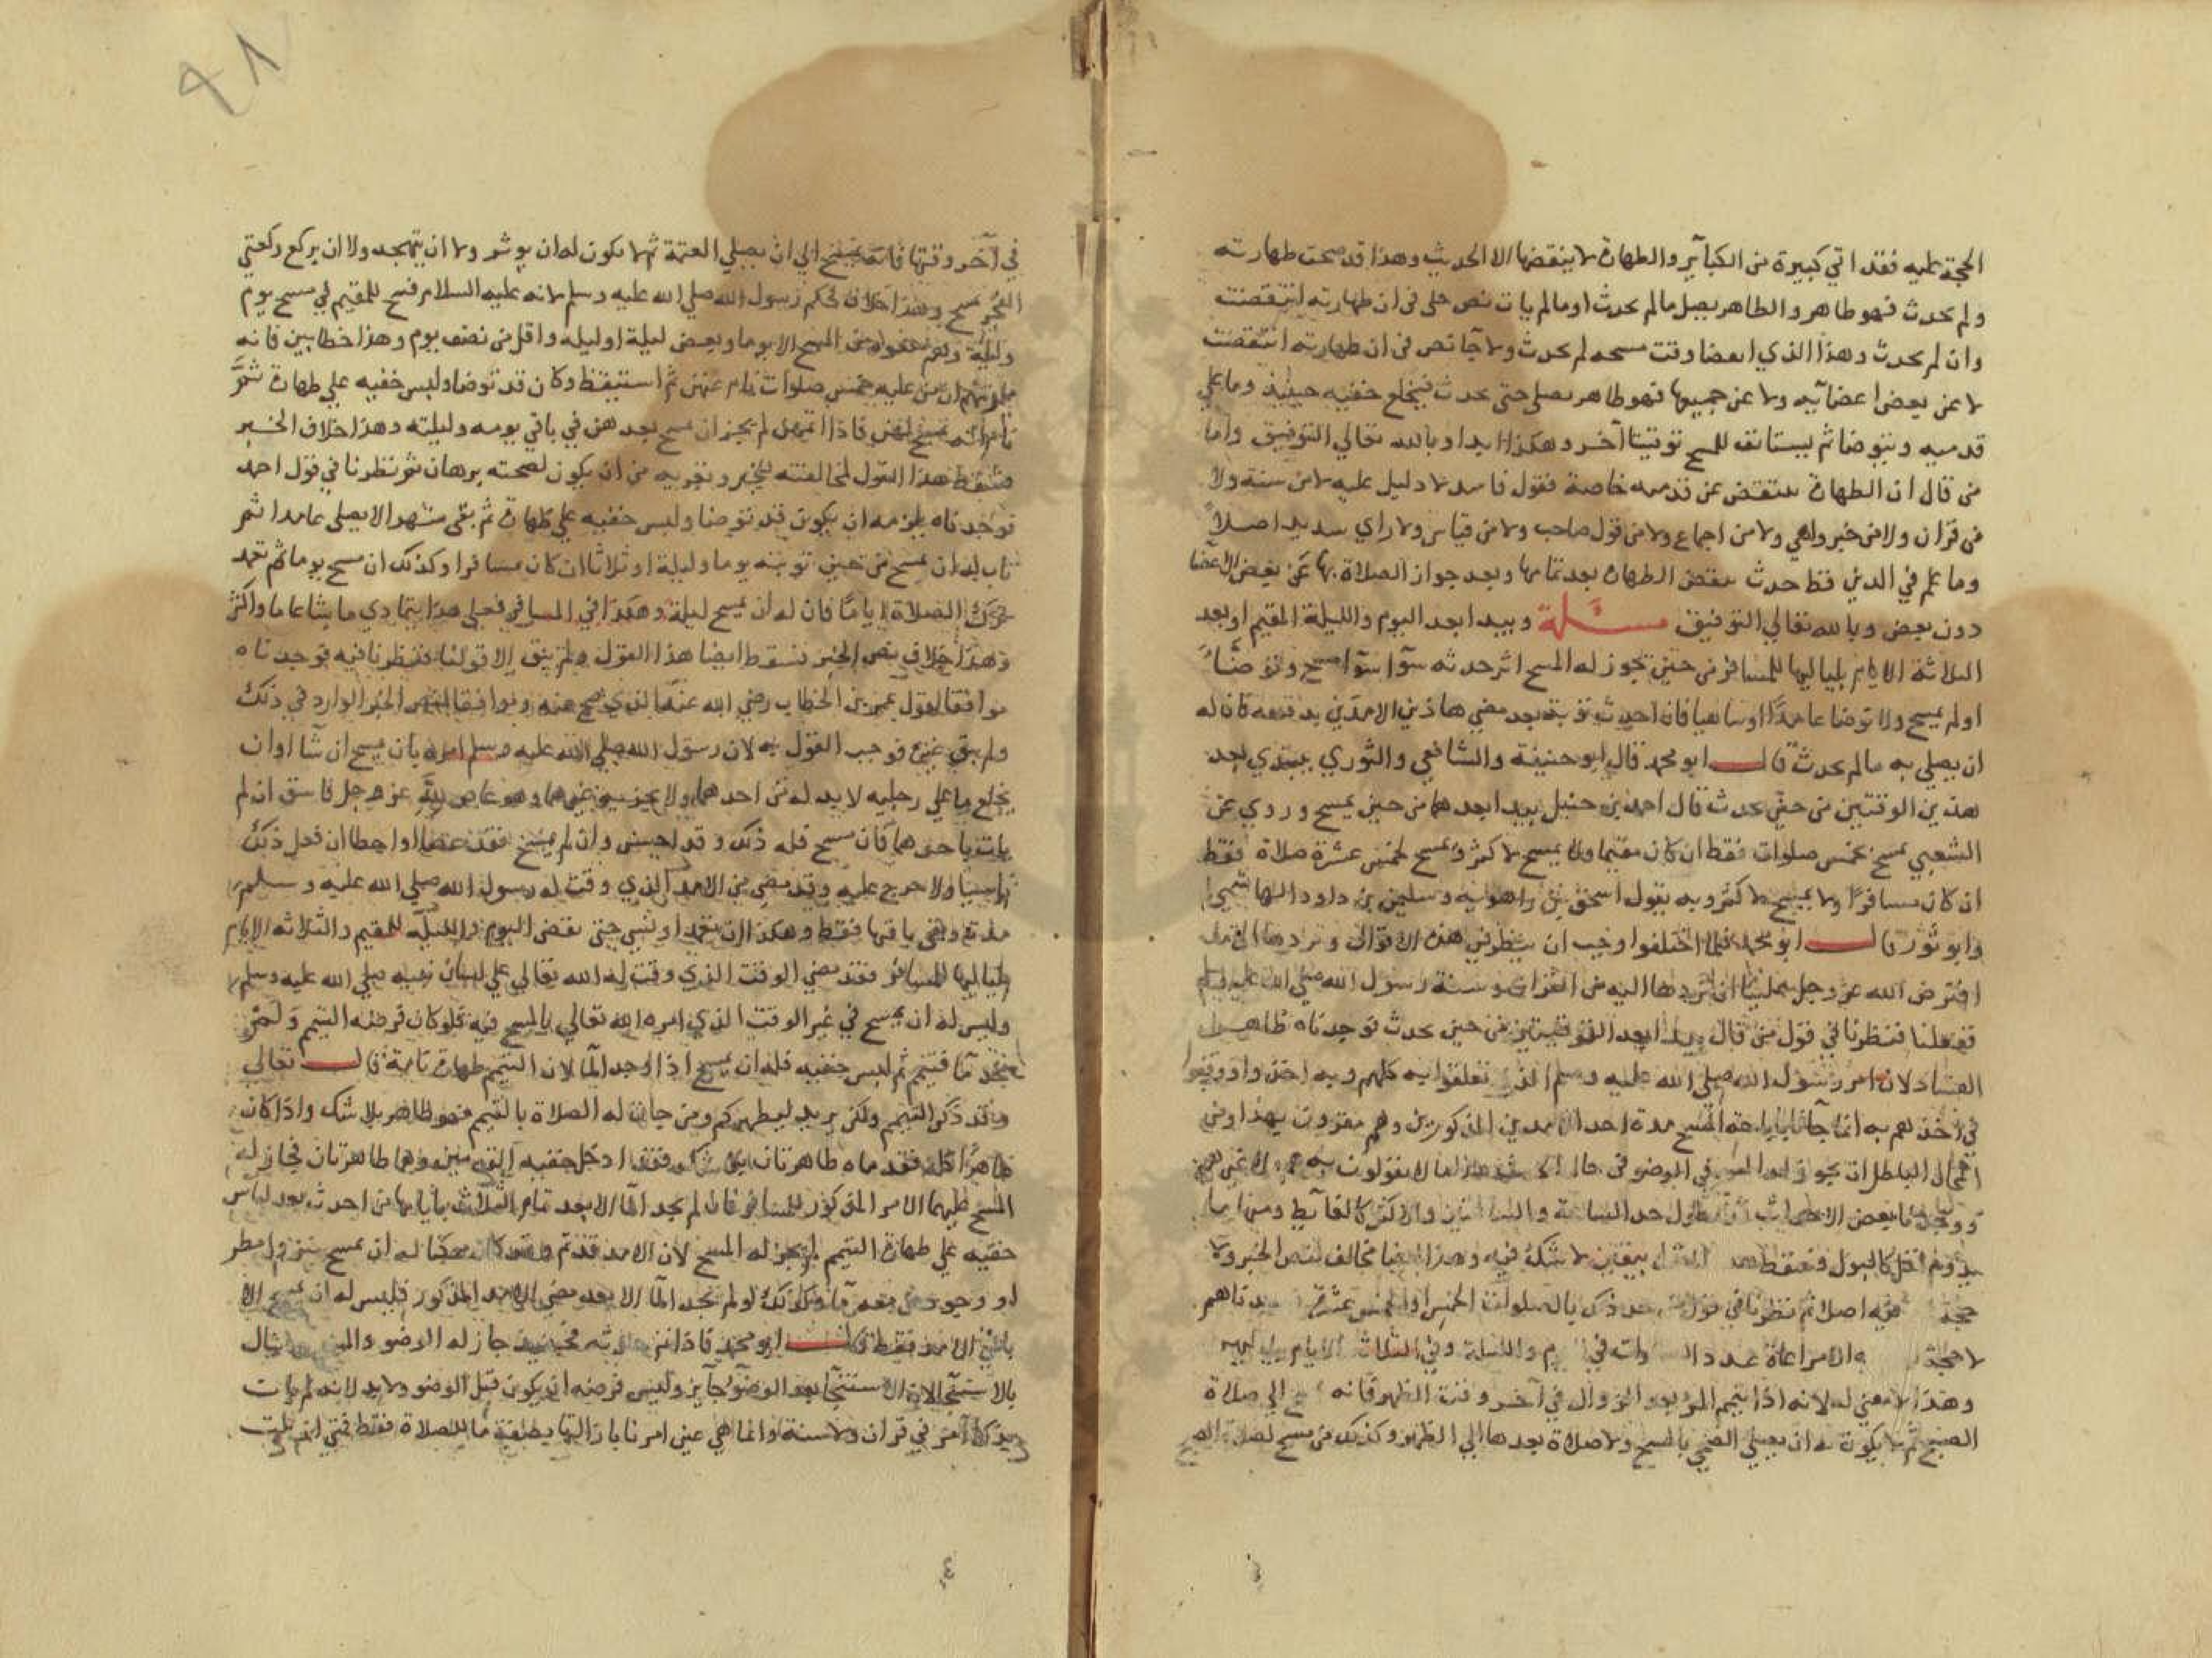 الحجة عليه فقد اتي كبيرة من الكبآير والطهارة لا ينقضها الا الحديث وهذا قد صحت طهارته
ولم يحدث فهو طاهر والطاهر يصلي مالم يحدث او مالم يات نص جلي في ان طهارته انتقضت
وان لم يحدث وهذا الذي انقضا وقت مسحه لم يحدث ولا جآ نص في ان طهارته انتقضت
لا عن بعض اعضآيه ولا عن جميعها فهو طاهر يصلي حتي يحدث فيخلع خفيه حينيذ وما علي
قدميه ويتوضا ثم يستانف المسح توقيتا آخر وهكذا ابدا وبالله تعالي التوفيق واما
من قال ان الطهارة تنتقض عن قدميه خاصة فقول فاسد لا دليل عليه لا من سنة ولا
من قران ولا من خبر واهي ولا من اجماع ولا من قول صاحب ولا من قياس ولا راي سديد اصلاً
وما علم في الدين قط حدث ينقض الطهارة بعد تمامها وبعد جواز الصلاة بها عن بعض الاعضا
دون بعض وبالله تعالي التوفيق مسئلة ويبدا بعد اليوم والليلة المقيم او بعد
الثلاثة الايام بلياليها للمسافر من حين يجوز له المسح اثر حدثه سوآ سوآ مسح وتوضأ
او لم يمسح ولا توضا عامدًا او ساهيا فان احدث بعد مضي هاذين الامدين فان له
ان يصلي به مالم يحدث قال ابو محمد قال ابو حنيفة والشافعي والثوري يبتدي بعد
هذين الوقتين من حين يحدث قال احمد بن حنبل يبدا بعدهما من حين يمسح وروي عن
الشعبي يمسح بخمس صلوات فقط ان كان مقيما ولا يمسح لاكثر ويمسح لخمس عشرة صلاة فقط
ان كان مسافرًا ولا يمسح لاكثر وبه يقول اسحق بن راهويه وسليمن بن داود الهاشمي
وابو ثور قال ابو محمد فلما اختلفوا وجب ان ينظر في هذه الاقوال ونردها الي ما
افترض الله عز وجل علينا ان نردها اليه من القران وسنة رسول الله صلي الله عليه وسلم
ففعلنا فنظرنا في قول من قال يبدا بعد الوقتين من حين يحدث فوجدناه ظاهر
الفساد لان امر رسول الله صلي الله عليه وسلم الذي تعلقوا به كلهم وبه اخذوا ووقفوا
في اخذهم به انما جآ باباحة المسح مدة احد الامدين المذكورين وهم مقرون بهذا ومن
المحال الباطل ان يجوز له المسح في الوضو في حال الحدث هذا ما لا يقولون به
ووجدنا بعض الاحداث يطول جدا الساعة والساعتين والاكثر كالغآيط ومنها ما
يدوم اقل كالبول فسقط هذا القول بيقين لا شك فيه وهذا ايضا مخالف لنص الخبر ولا
حجة فيه اصلا ثم نظرنا في قول من حد ذلك بالصلوات الخمس او الخمس عشرة فوجدناهم
لا حجة الا مراعاة عدد في اليوم والليلة وفي الثلاث الايام
وهذا لا معني له لانه اذا المرء بعد الزوال في آخر وقت الظهر فانه الي صلاة
الصبح ثم لا يكون له ان يصلي الضحي بالمسح ولا صلاة بعدها الي الظهر وكذلك من مسح لصلاة الصبح
في آخر وقتها فانه يمسح الي ان يصلي العتمة ثم لا يكون له ان يوتر ولا ان يتهجد ولا ان يركع ركعتي
الفجر بمسح وهذا خلاف لحكم رسول الله صلي الله عليه وسلم لانه عليه السلام فسح للمقيم في مسح يوم
وليلة وهم منعوه من المسح الا يوما وبعض ليلة او ليلة واقل من نصف يوم وهذا خطا بين فانه
يلزمهم ان من عليه خمس صلوات نام عنهن ثم استيقظ وكان قد توضا ولبس خفيه علي طهارة ثم
نام انه يمسح لهن فاذا اتمهن لم يجز ان يمسح بعدهن في باقي يومه وليلته وهذا خلاف الخبر
فسقط هذا القول لمخالفته للخبر وتعريه من ان يكون لصحته برهان ثم نظرنا في قول احمد
فوجدناه يلزمه ان يكون قد توضا ولبس خفيه علي طهارة ثم بقي شهرا لا يصلي عامدا ثم
تاب له ان يمسح من حين توبته يوما وليلة او ثلاثا ان كان مسافرا وكذلك ان مسح يوما ثم تعمد
ترك الصلاة اياما فان له ان يمسح ليلة وهكذا في المسافر فعلي هذا يتمادي ما شا عاما واكثر
وهذا خلاف نص الخبر فسقط ايضا هذا القول ولم يبق الا قولنا فنظرنا فيه فوجدناه
موافقا لقول عمر بن الخطاب رضي الله عنه الذي صح عنه وموافقا لنص الخبر الوارد في ذلك
ولم يبق غيره فوجب القول به لان رسول الله صلي الله عليه وسلم امره بان يمسح ان شآ او ان
يخلع ما علي رجليه لا بد له من احدهما ولا يجزيه غيرهما وهو عاص لله عز وجل فاسق ان لم
يات باحدهما فان مسح فله ذلك وقد احسن وان لم يمسح فقد عصا او اخطا ان فعل ذلك
ناسيا ولا حرج عليه وقد مضي من الامد الذي وقت له رسول الله صلي الله عليه وسلم
مدة وبقي باقيها فقط وهكذا ان تعمد او نسي حتي تنقضي اليوم والليلة للمقيم والثلاثة الايام
بلياليها للمسافر فقد مضي الوقت الذي وقت له الله تعالي علي لسان نبيه صلي الله عليه وسلم
وليس له ان يمسح في غير الوقت الذي امره الله تعالي بالمسح فيه فلو كان فرضه التيمم ولم
يجد مآ فتيمم ثم لبس خفيه فله ان يمسح اذا وجد المآ لان التيمم طهارة تامة قال تعالي
وقد ذكر التيمم ولكن يريد ليطهركم ومن جازت له الصلاة بالتيمم فهو طاهر بلا شك واذا كان
طاهرًا كله فقدماه طاهرتان بلا شك فقد ادخل خفيه القدمين وهما طاهرتان فجاز له
المسح عليهما الامد المذكور للمسافر فان لم يجد المآ الا بعد تمام الثلاث بلياليها من احدث بعد لباس
خفيه علي طهارة التيمم لم يجز له المسح لان الامد قد تم وقد كان ممكنا له ان يمسح بنزول مطر
او وجود من معه مآ وكذلك لو لم يجد المآ الا بعد مضي الامد المذكور فليس له ان يمسح الا
باقي الامد فقط قال ابو محمد فاذا فحينيذ جاز له الوضو والمسح
بالاستنجآ لان الاستنجآ بعد الوضوٓ جآيز وليس فرضه ان يكون قبل الوضو ولا بد لانه لم يات
بذلك امر في قران ولا سنة وانما هي عين امرنا بازالتها بصفة ما للصلاة فقط فمتي